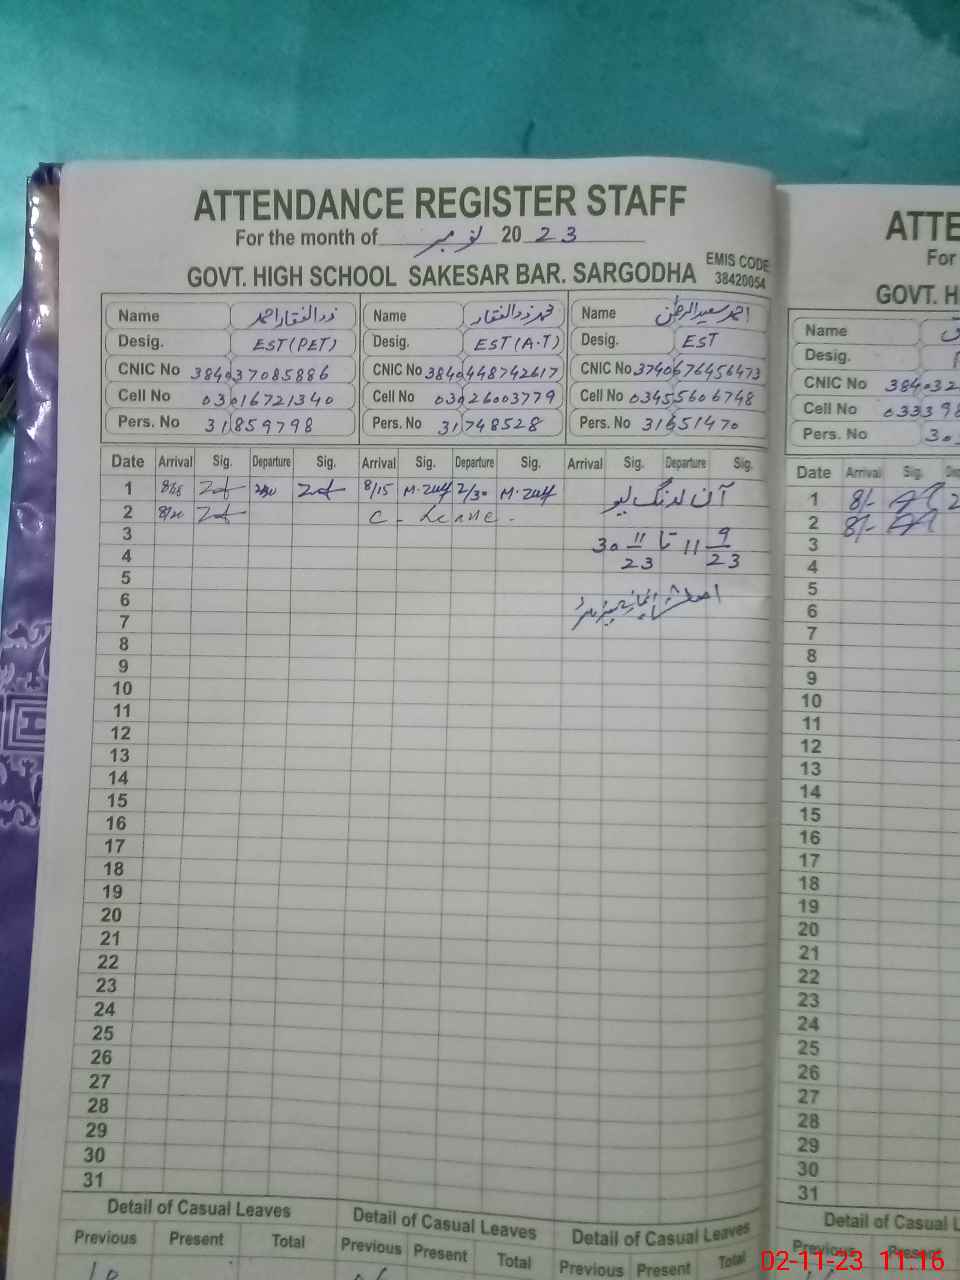 ATTENDANCE REGISTER STAFF
For the month of نومبر 20 23
GOVT. HIGH SCHOOL SAKESAR BAR. SARGODHA
EMIS CODE
38420054
Name ذوالفقار احمد
Desig. EST (PET)
CNIC No 384037085886
Cell No 03016721340
Pers. No 31859798
Name محمد ذوالفقار
Desig. EST (A.T)
CNIC No 3840448742617
Cell No 03026003779
Pers. No 31748528
Name احمد سعید الرحمٰن
Desig. EST
CNIC No 3740676456473
Cell No 03455606748
Pers. No 31651470
Date Arrival Sig. Departure Sig. Arrival Sig. Departure Sig. Arrival Sig. Departure Sig.
1 8/15 M. Zulf 2/30 M. Zulf آن لانگ لیو
2 C- Leave.
3 30 11/23 تا 11 9/23
4
5
6
7
8
9
10
11
12
13
14
15
16
17
18
19
20
21
22
23
24
25
26
27
28
29
30
31
Detail of Casual Leaves Detail of Casual Leaves Detail of Casual Leaves
Previous Present Total Previous Present Total Previous Present Total
10
ATTE
For
GOVT. H
Name
Desig.
CNIC No 384032
Cell No 03339
Pers. No 30
Date Arrival Sig.
1 8/-
2 8/-
3
4
5
6
7
8
9
10
11
12
13
14
15
16
17
18
19
20
21
22
23
24
25
26
27
28
29
30
31
Detail of Casual L
Previous Present
02-11-23 11:16